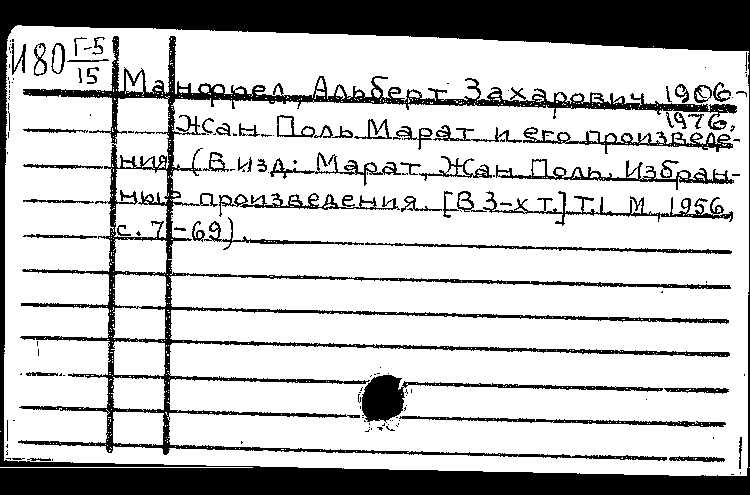 И80 Г-5
15
Манфред, Альберт Захарович, 1906-
1976.
Жан Поль Марат и его произведе-
ния. (В изд: Марат, Жан Поль. Избран-
ные произведения. [В 3-х т.] Т.1. М., 1956,
с. 7-69).